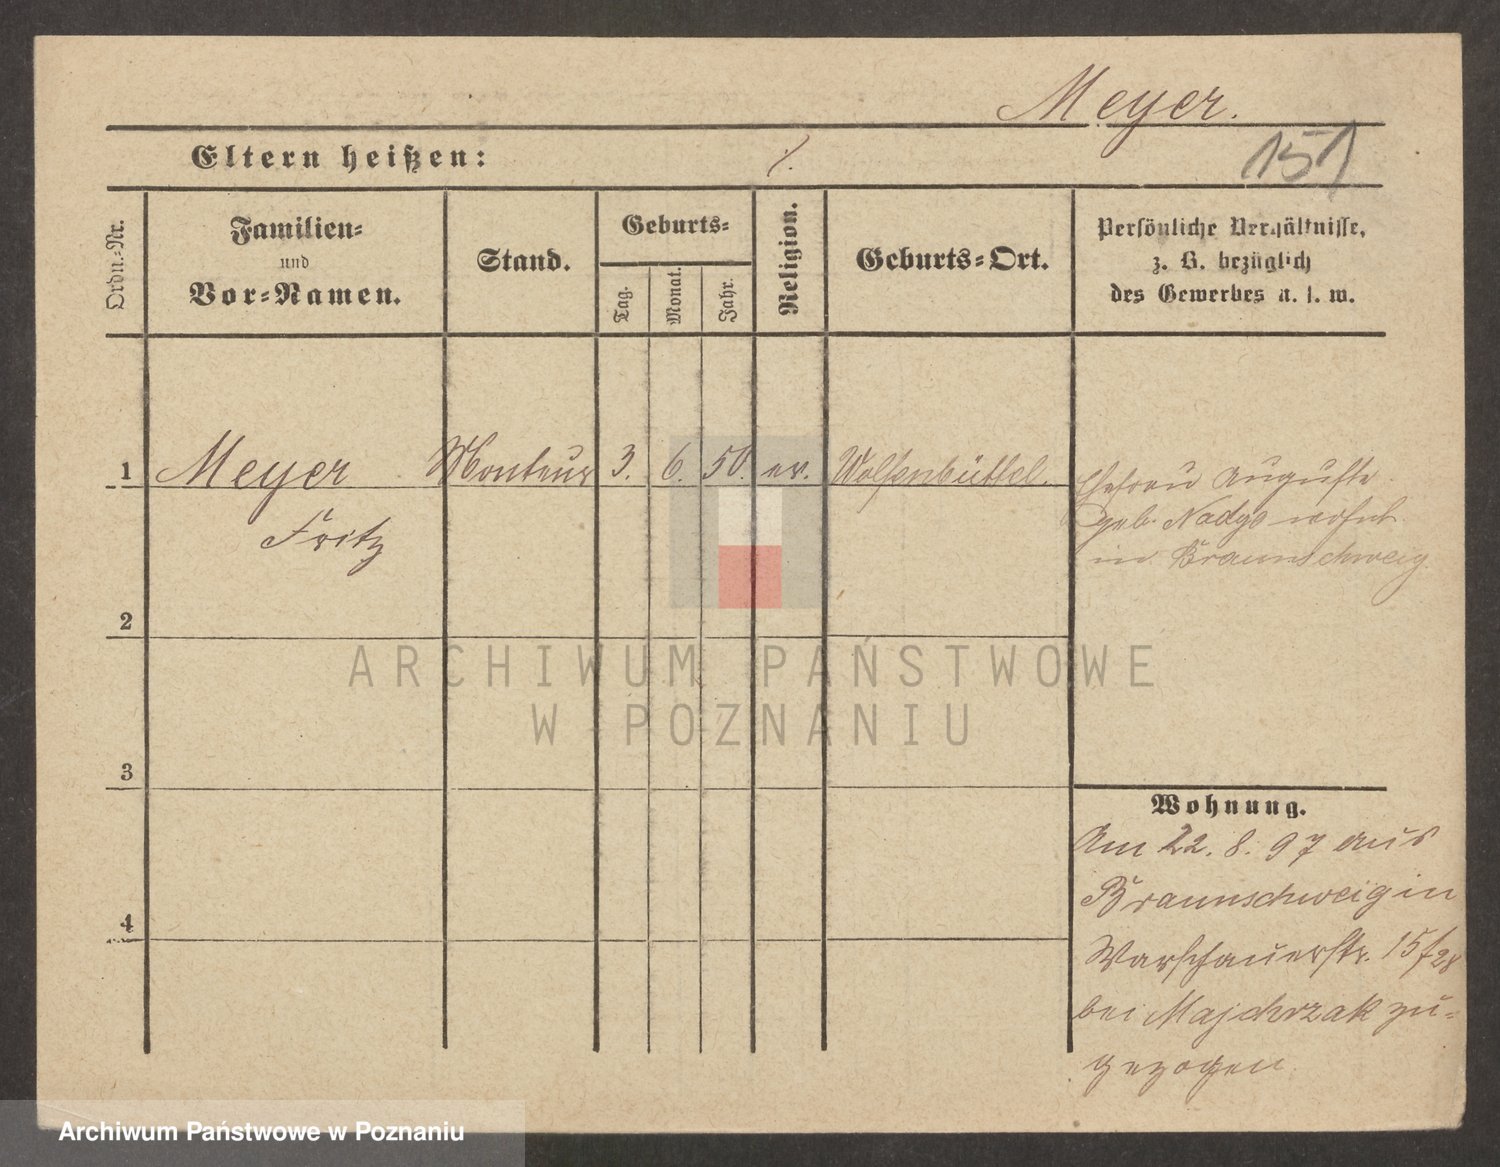 Meyer.
Eltern heißen: /.
151
Ordn.-Nr.
Familien-
und
Vor-Namen.
Stand.
Geburts-
Tag.
Monat.
Jahr.
Religion.
Geburts-Ort.
Persönliche Verhältnisse,
z. B. bezüglich
des Gewerbes u. s. w.
1 Meyer Monteur 3. 6. 50. ev. Wolfenbüttel.
Fritz
Ehefrau Auguste
geb. wohnt
in Braunschweig.
2
3
4
Wohnung.
Am 22. 8. 97 aus
Braunschweig in
Warschauerstr. 15/28
bei Majchrzak zu-
gezogen
ARCHIWUM PAŃSTWOWE
W POZNANIU
Archiwum Państwowe w Poznaniu